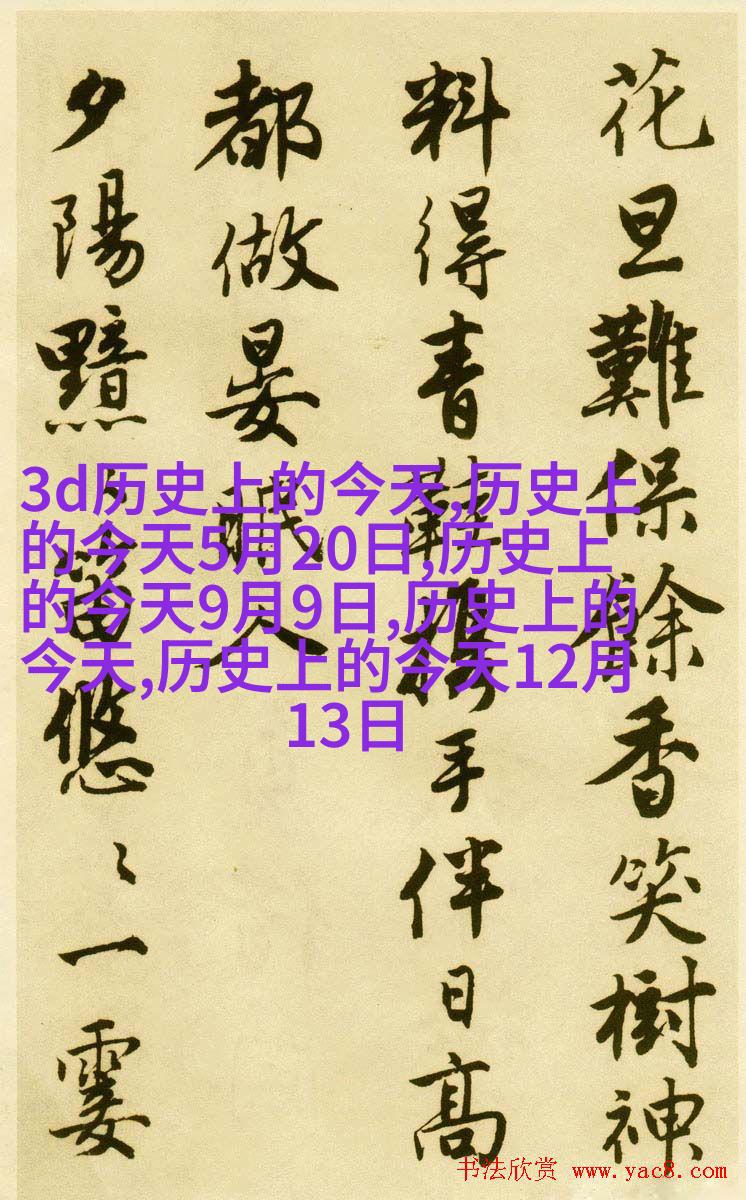 花旦難保餘香笑樹神
料得青鞋携手伴日高
都做晏眠人
夕陽黯〻笛悠〻一霎
3d历史上的今天,历史上
的今天5月20日,历史上
的今天9月9日,历史上的
今天,历史上的今天12月
13日
书法欣赏 www.yac8.com